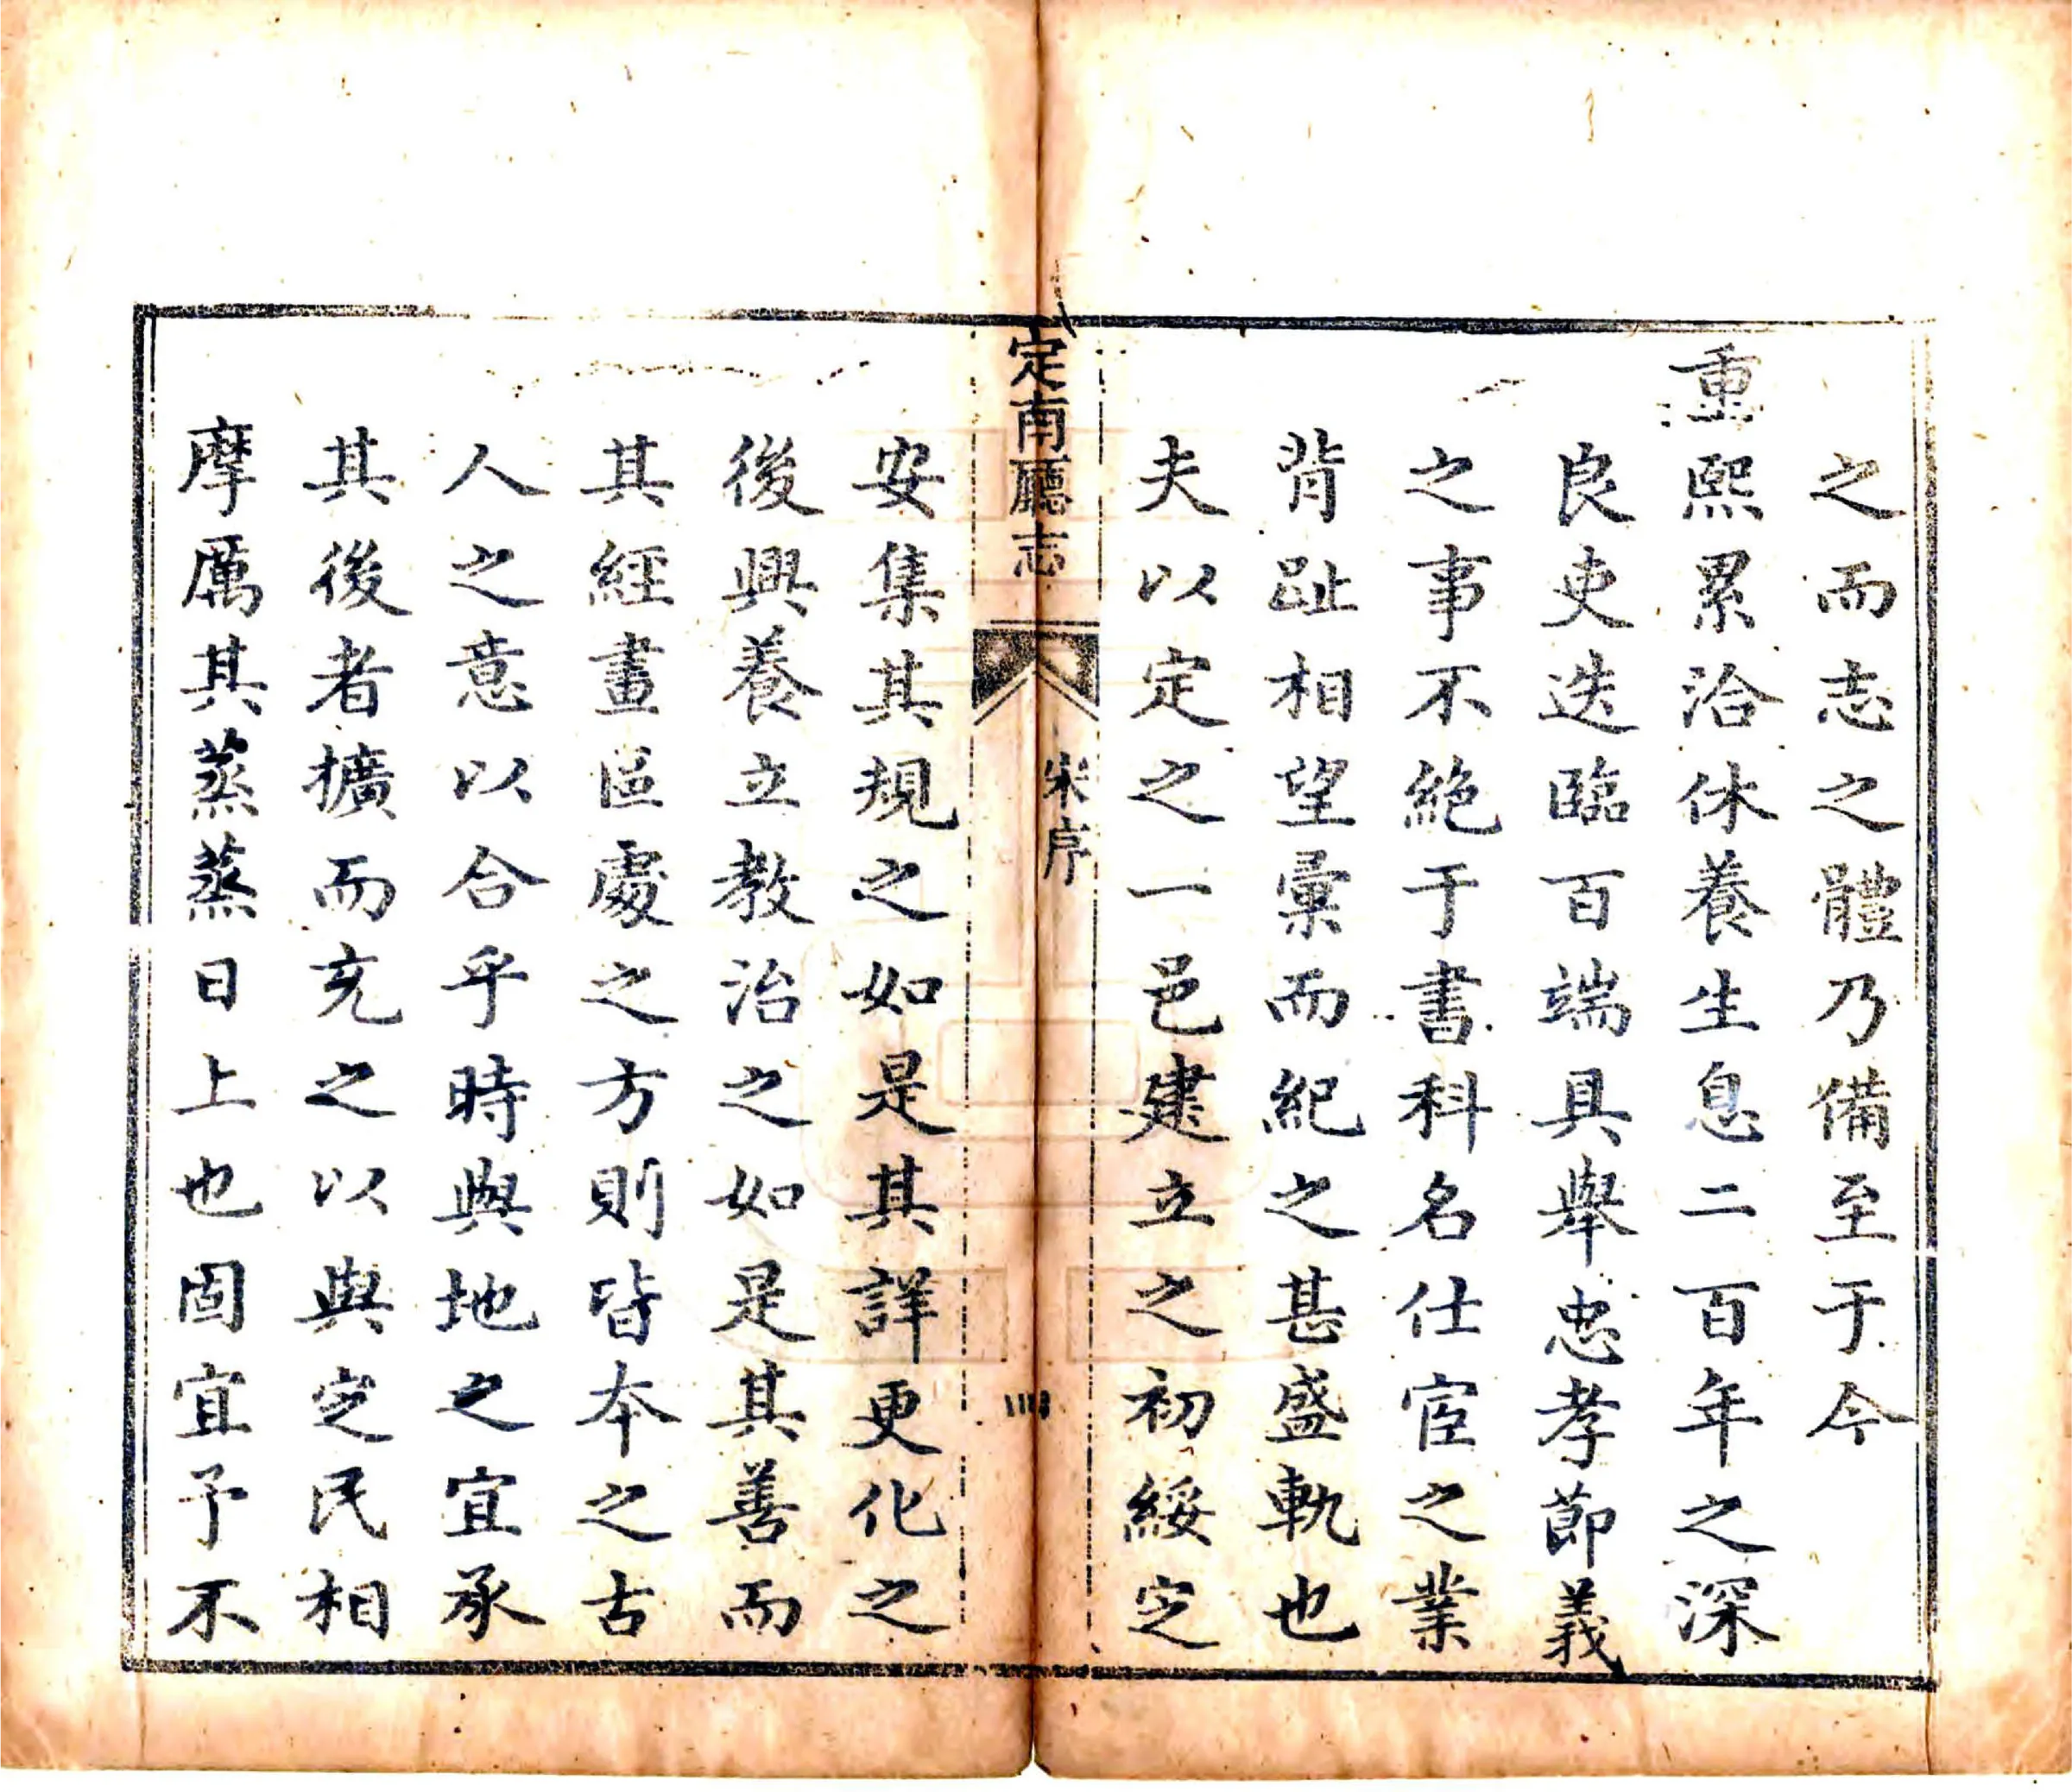 之而志之體乃備至于今
重熙累洽休養生息二百年之深
良吏迭臨百端具舉忠孝節義
之事不絶于書科名仕宦之業
背趾相望彙而紀之甚盛軌也
夫以定之一邑建立之初綏定
定南廳志
宋序
安集其規之如是其詳更化之
後興養立教治之如是其善而
其經畫區處之方則皆本之古
人之意以合乎時與地之宜承
其後者擴而充之以與定民相
摩厲其蒸蒸日上也固宜予不